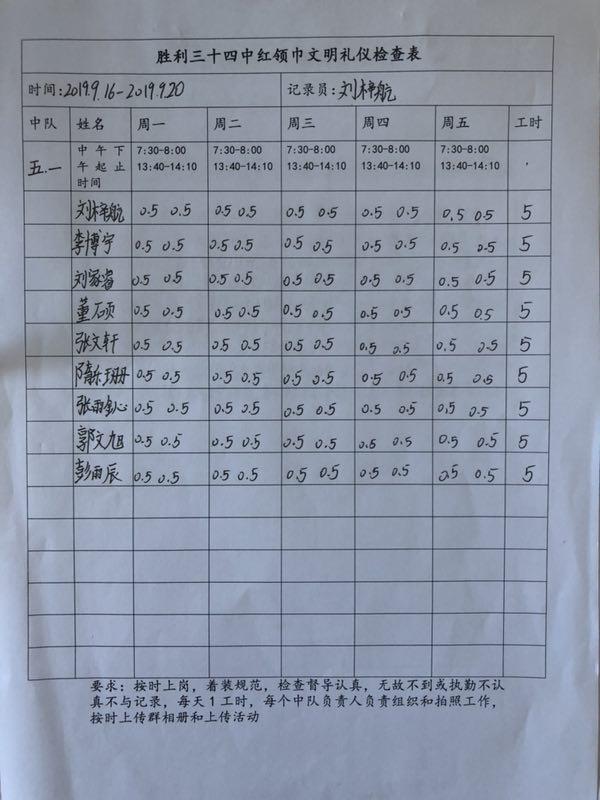 胜利三十四中红领巾文明礼仪检查表
时间:2019.9.16-2019.9.20 记录员:刘梓航
中队 姓名 周一 周二 周三 周四 周五 工时
五.一 中午下午起止时间 7:30-8:00 13:40-14:10 7:30-8:00 13:40-14:10 7:30-8:00 13:40-14:10 7:30-8:00 13:40-14:10 7:30-8:00 13:40-14:10
刘梓航 0.5 0.5 0.5 0.5 0.5 0.5 0.5 0.5 0.5 0.5 5
李博宁 0.5 0.5 0.5 0.5 0.5 0.5 0.5 0.5 0.5 0.5 5
刘家睿 0.5 0.5 0.5 0.5 0.5 0.5 0.5 0.5 0.5 0.5 5
董硕 0.5 0.5 0.5 0.5 0.5 0.5 0.5 0.5 0.5 0.5 5
张文轩 0.5 0.5 0.5 0.5 0.5 0.5 0.5 0.5 0.5 0.5 5
隋乐珊 0.5 0.5 0.5 0.5 0.5 0.5 0.5 0.5 0.5 0.5 5
张雨鑫 0.5 0.5 0.5 0.5 0.5 0.5 0.5 0.5 0.5 0.5 5
郭文旭 0.5 0.5 0.5 0.5 0.5 0.5 0.5 0.5 0.5 0.5 5
彭雨辰 0.5 0.5 0.5 0.5 0.5 0.5 0.5 0.5 0.5 0.5 5
要求:按时上岗,着装规范,检查督导认真,无故不到或执勤不认
真不与记录,每天1工时,每个中队负责人负责组织和拍照工作,
按时上传群相册和上传活动